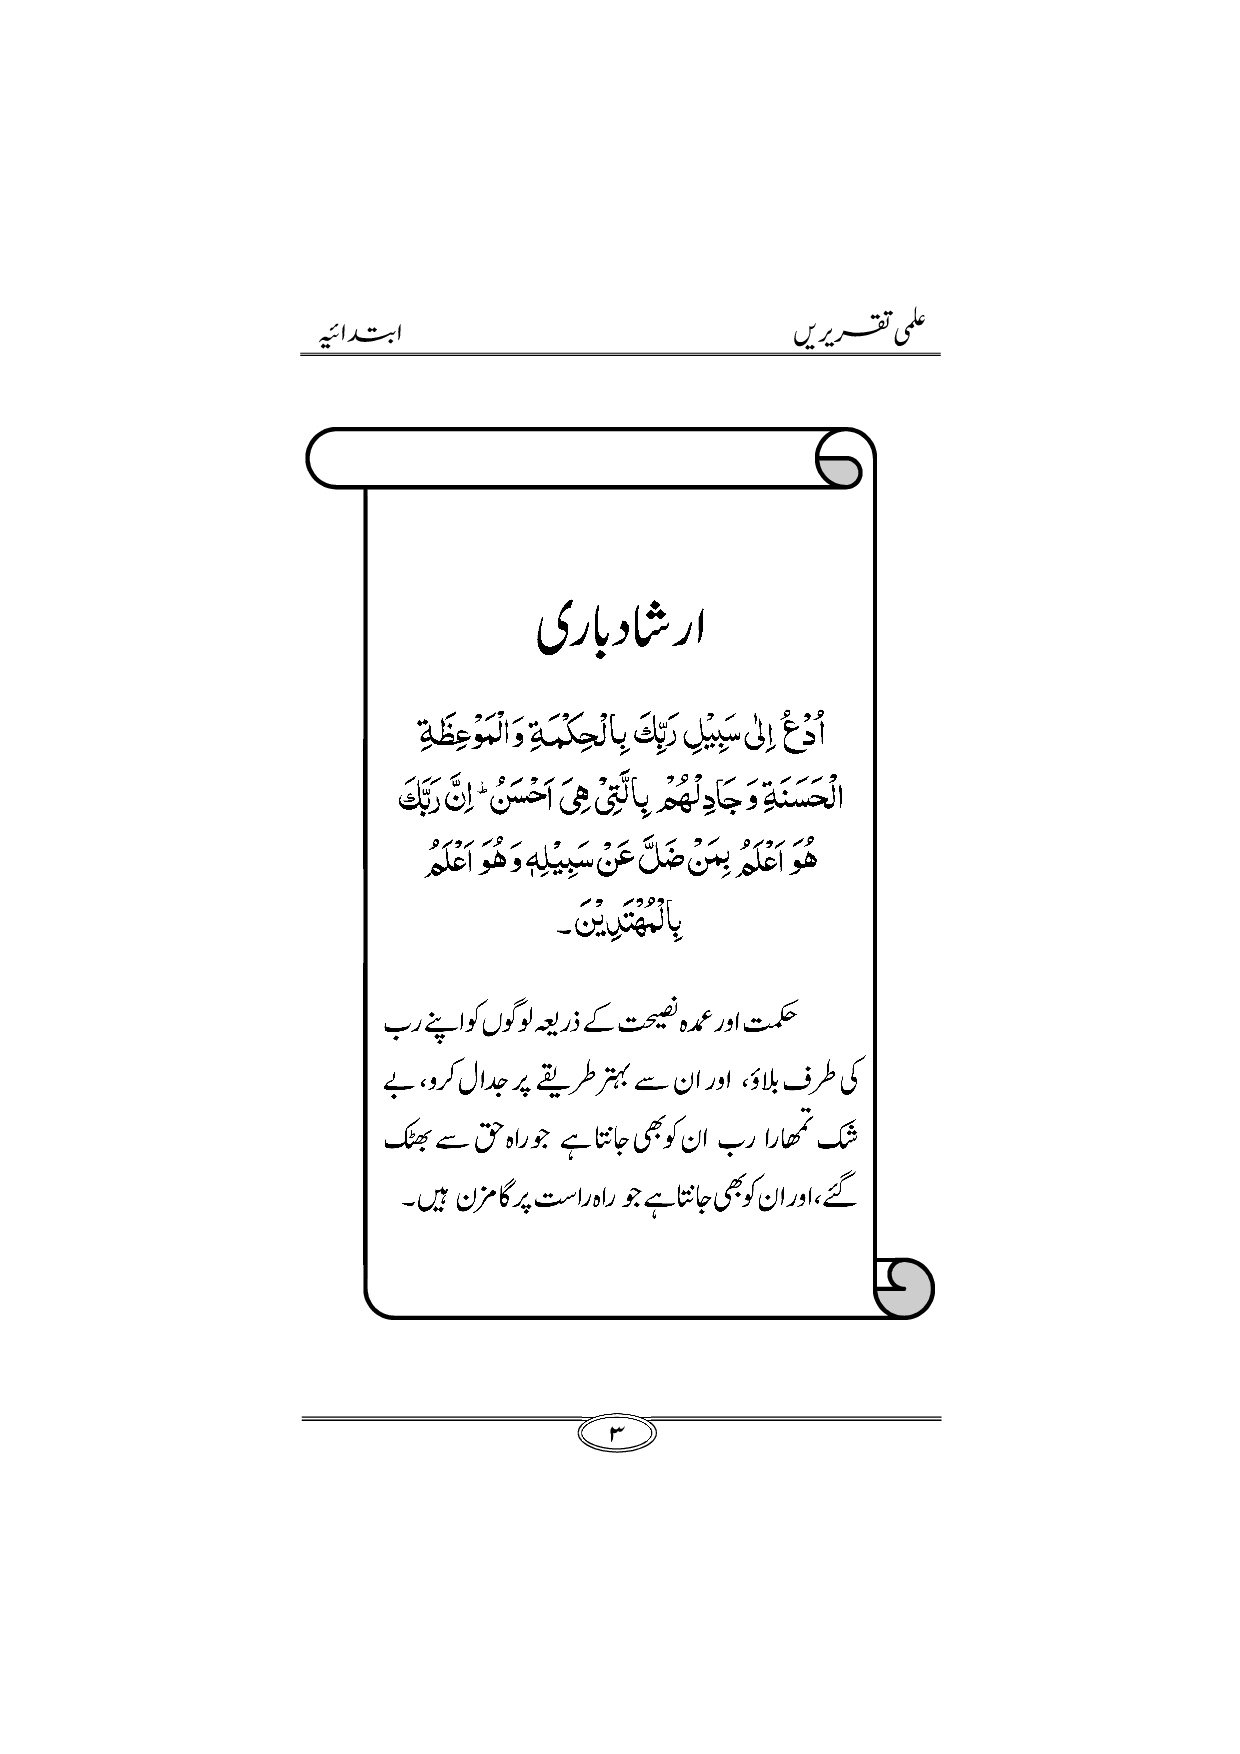 علمی تقریریں
ابتدائیہ
ارشاد باری
اُدْعُ اِلٰی سَبِیْلِ رَبِّكَ بِالْحِكْمَةِ وَالْمَوْعِظَةِ
الْحَسَنَةِ وَجَادِلْهُمْ بِالَّتِیْ هِیَ اَحْسَنُ ؕ اِنَّ رَبَّكَ
هُوَ اَعْلَمُ بِمَنْ ضَلَّ عَنْ سَبِیْلِهٖ وَهُوَ اَعْلَمُ
بِالْمُهْتَدِیْنَ۔
حکمت اور عمدہ نصیحت کے ذریعہ لوگوں کو اپنے رب
کی طرف بلاؤ، اور ان سے بہتر طریقے پر جدال کرو، بے
شک تمھارا رب ان کو بھی جانتا ہے جو راہ حق سے بھٹک
گئے، اور ان کو بھی جانتا ہے جو راہ راست پر گامزن ہیں۔
۳